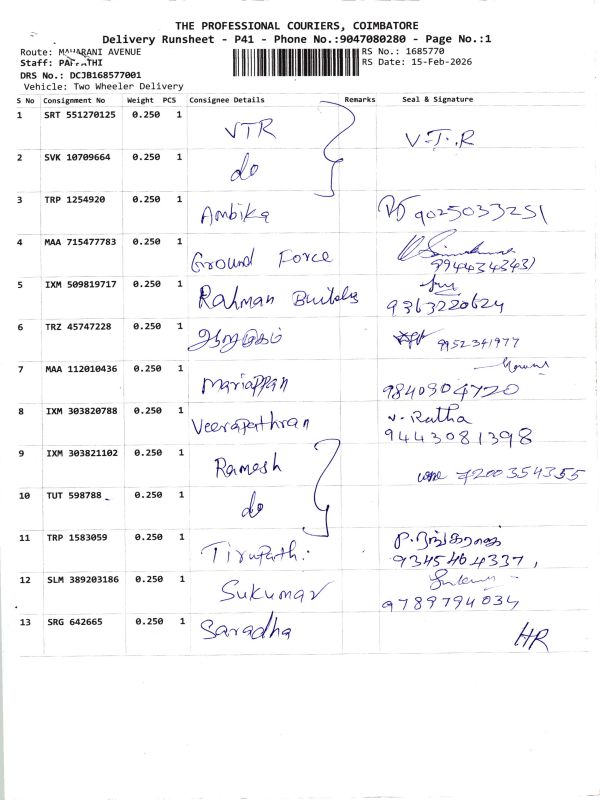 THE PROFESSIONAL COURIERS, COIMBATORE
Delivery Runsheet - P41 - Phone No.:9047080280 - Page No.:1
Route: MAHARANI AVENUE
RS No.: 1685770
Staff: PAPPATHI
RS Date: 15-Feb-2026
DRS No.: DCJB168577001
Vehicle: Two Wheeler Delivery
S No Consignment No Weight PCS Consignee Details Remarks Seal & Signature
1 SRT 551270125 0.250 1 VTR V.T.R
2 SVK 10709664 0.250 1 do
3 TRP 1254920 0.250 1 Ambika 9025033251
4 MAA 715477783 0.250 1 Ground Force
9944343431
5 IXM 509819717 0.250 1 Rahman Builders
9363220624
6 TRZ 45747228 0.250 1 ஆறுமுகம் 9952341977
7 MAA 112010436 0.250 1 Mariappan
9840904720
8 IXM 303820788 0.250 1 Veerapathran V. Ratha
9443081398
9 IXM 303821102 0.250 1 Ramesh 7200354355
10 TUT 598788 0.250 1 do
11 TRP 1583059 0.250 1 Tirupathi
9345464337,
12 SLM 389203186 0.250 1 Sukumar
9789794034
13 SRG 642665 0.250 1 Saradha
HR